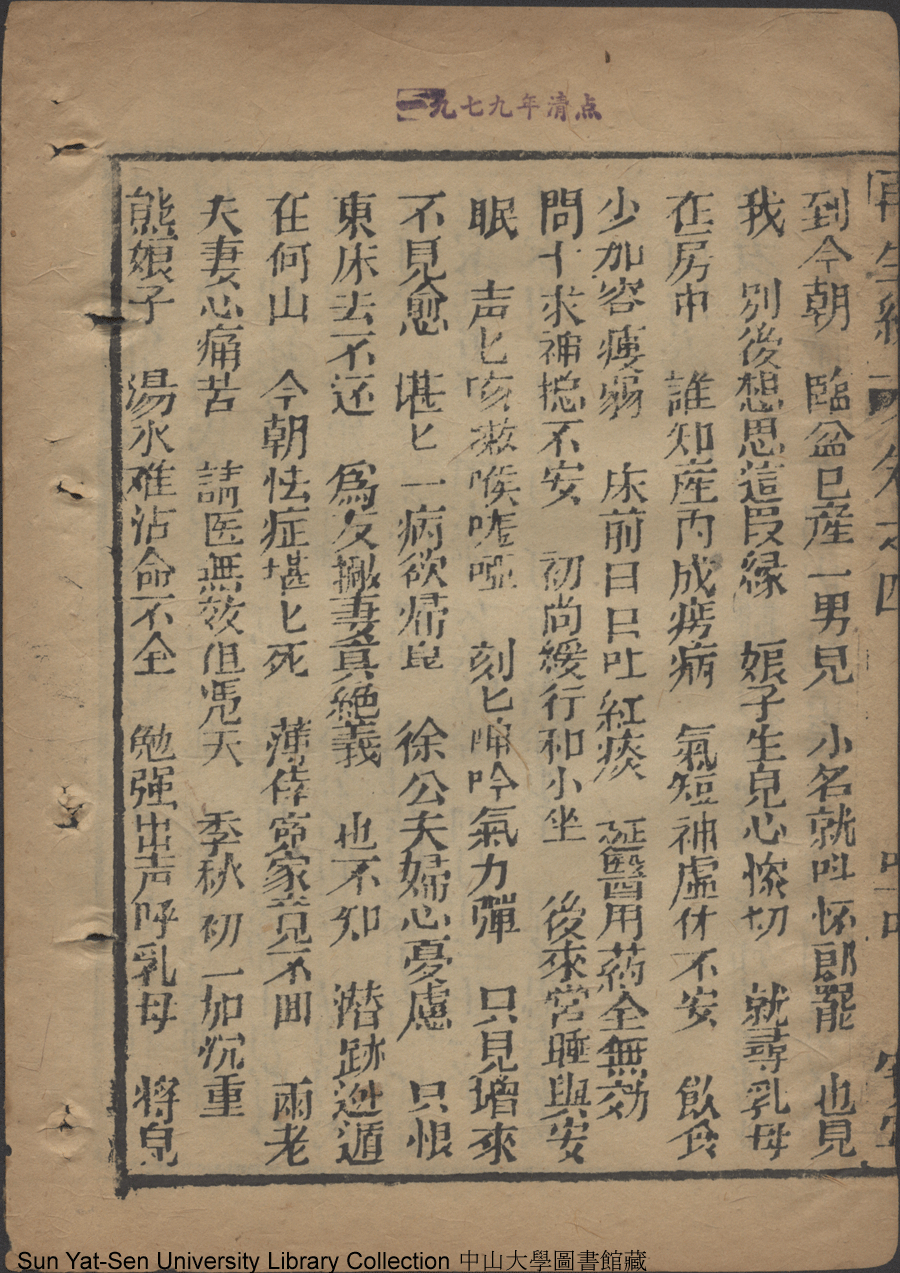 一九七九年清点
到今朝 臨盆已產一男兒 小名就叫怀郎罷 也見
我 別後想思這段緣 娘子生兒心慘切 就尋乳母
在房中 誰知産內成癆病 氣短神虛休不安 飲食
少加容瘦弱 床前日日吐紅痰 延醫用药全無効
問卜求神摠不安 初尚緩行和小坐 後來常睡與安
眠 声匕咳嗽喉嘘啞 刻匕呻吟氣力殫 只見增來
不見愈 堪匕一病欲歸泉 徐公夫婦心憂慮 只恨
東床去不还 爲友抛妻真絕義 也不知 潜跡逃遁
在何山 今朝怯症堪匕死 薄倖寃家竟不囬 兩老
夫妻心痛苦 請医無效但凴天 季秋初一加沉重
熊娘子 湯水难沾命不全 勉强出声呼乳母 將兒
之四
Sun Yat-Sen University Library Collection 中山大學圖書館藏